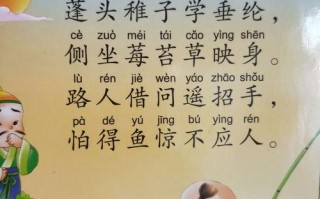 蓬头稚子学垂纶，
cè zuò méi tái cǎo yìng shēn
侧坐莓苔草映身。
lù rén jiè wèn yáo zhāo shǒu
路人借问遥招手，
pà dé yú jīng bù yìng rén
怕得鱼惊不应人。